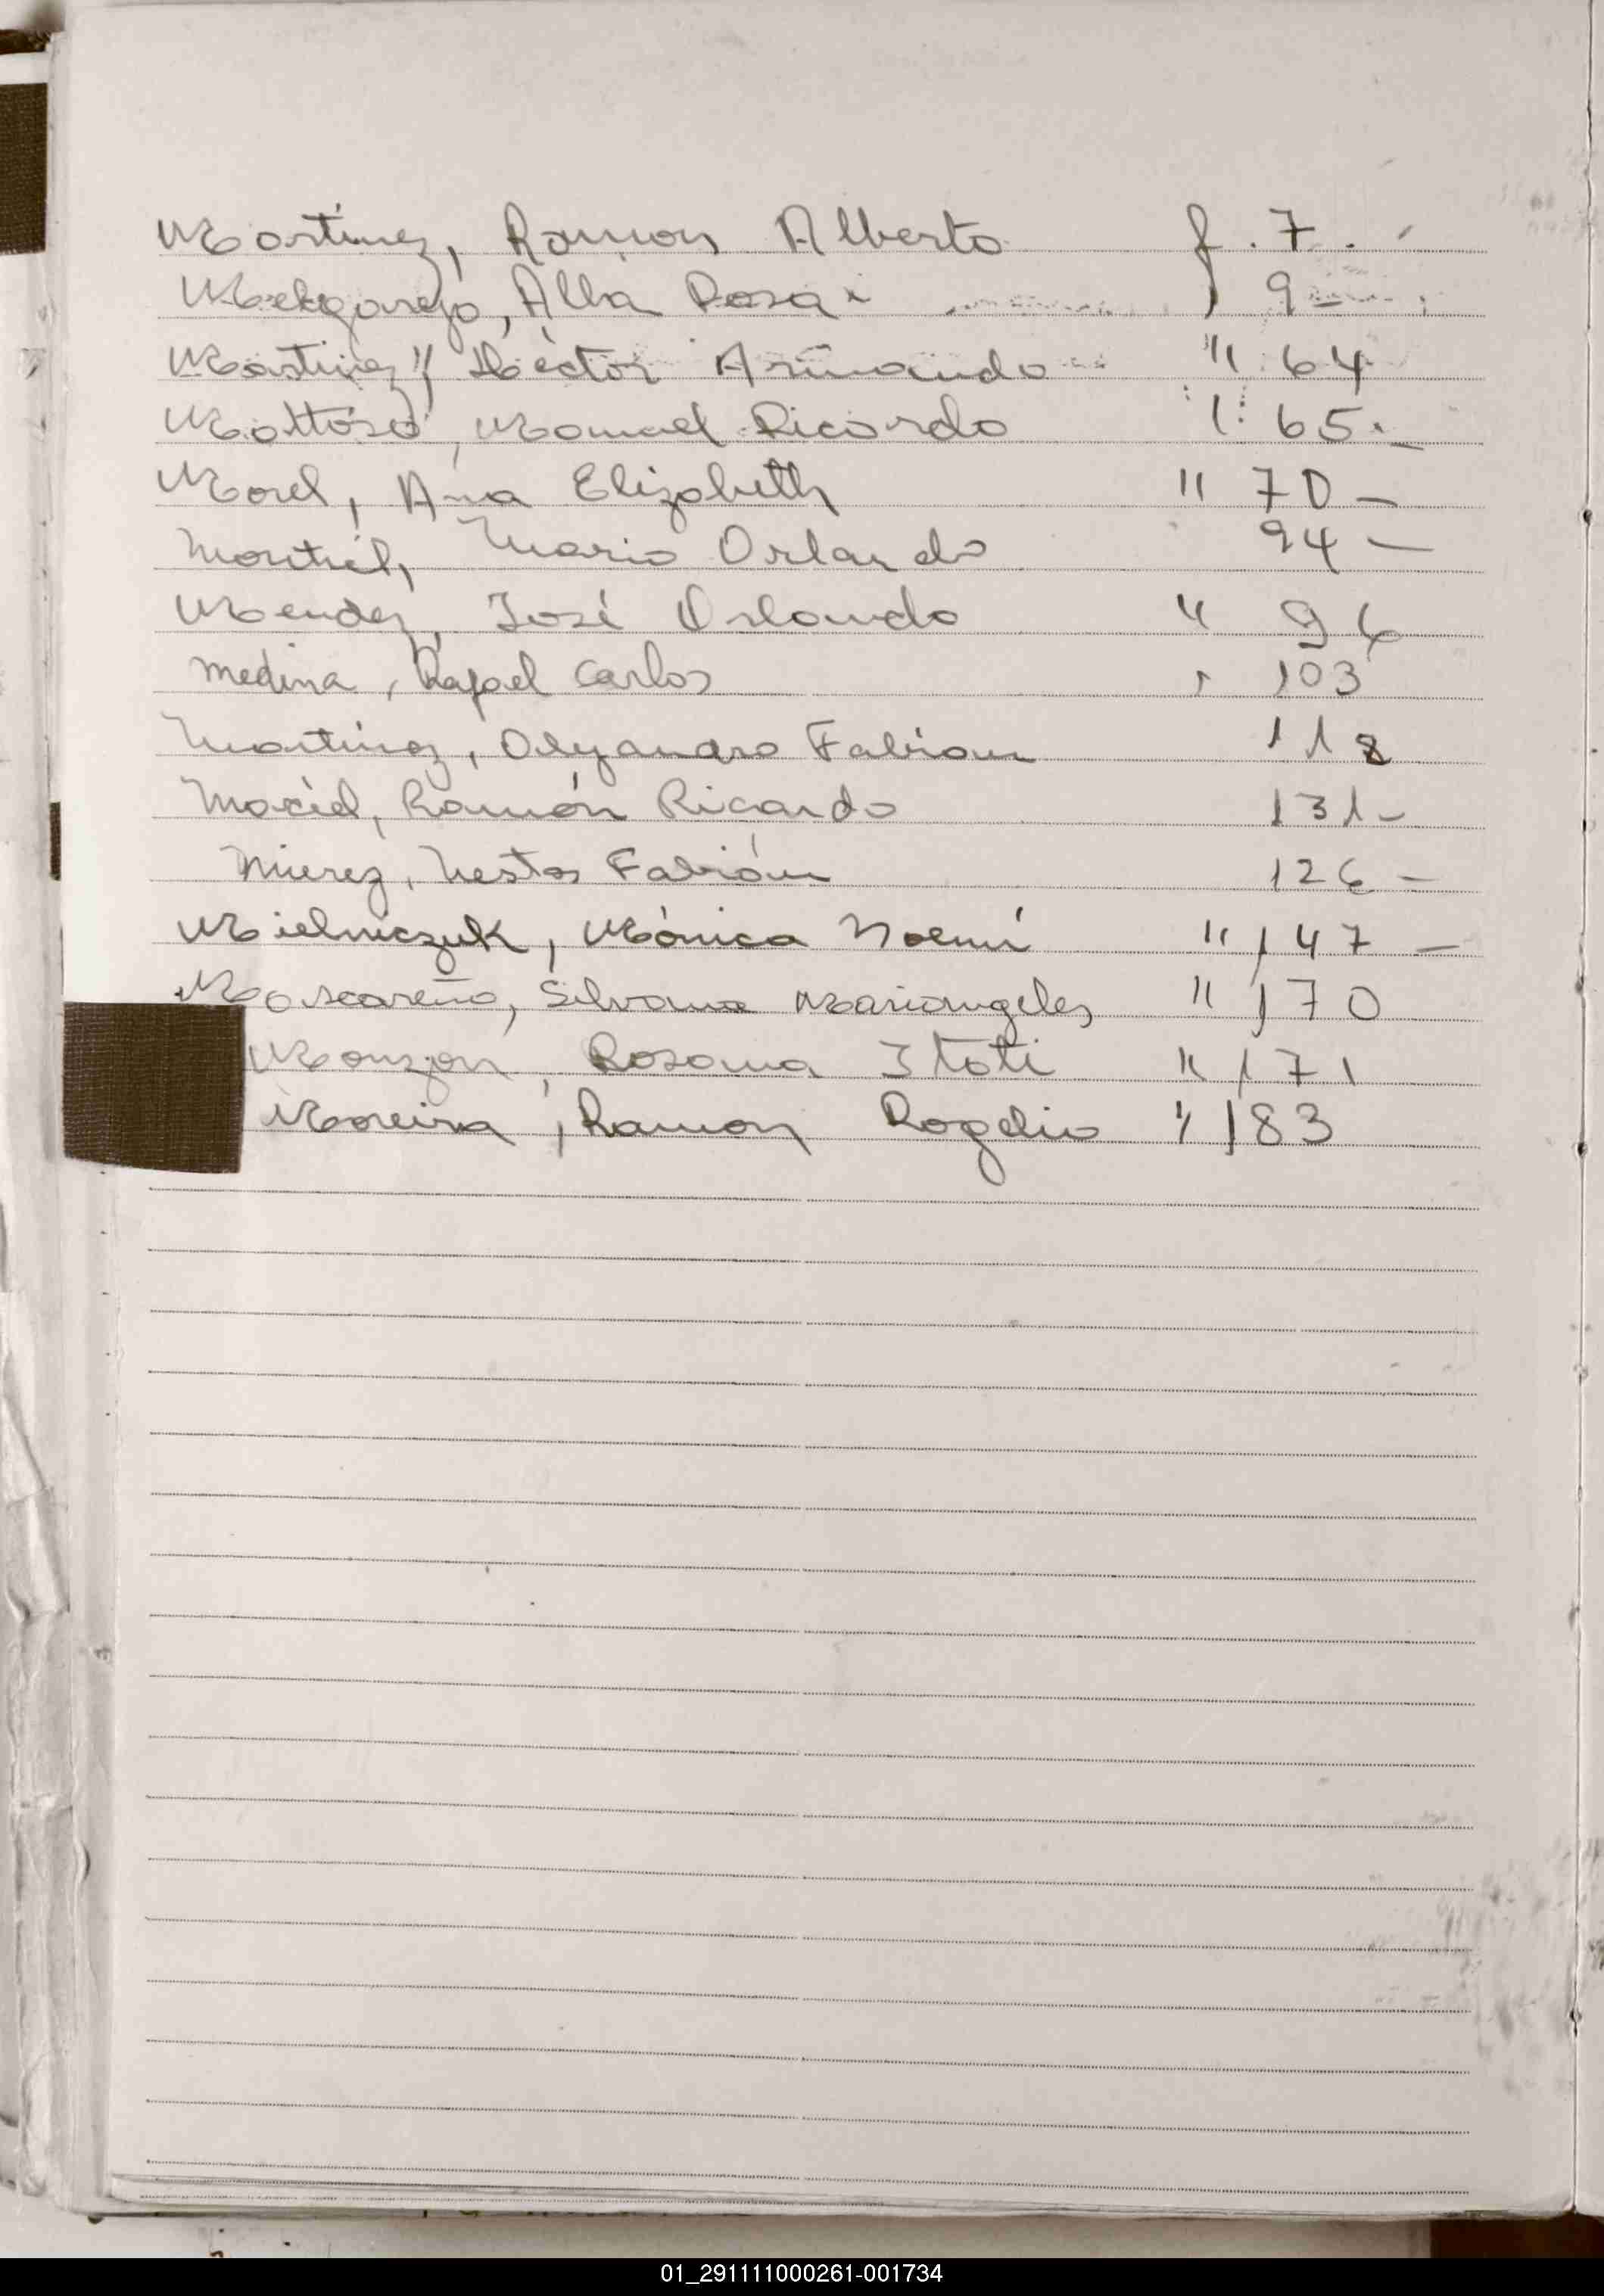 Martinez, Ramon Alberto f. 7.
Melgarejo, Alba Rosa 9
Martinez, Héctor Armando " 64
Mottoso, Manuel Ricardo " 65.-
Morel, Ana Elizabeth " 70 -
Montiel, Mario Orlando 94 -
Mendez, José Orlando "
Medina, Rafael Carlos " 103
Martinez, Alejandro Fabian 118
Maciel, Ramón Ricardo 131-
Mierez, Nestor Fabián 126 -
Mielniczuk, Mónica Noemí " 147 -
Moscareño, Silvana Mariangeles " 170
Monzon, Rosana Itati " 171
Moreira, Ramon Rogelio " 183
01_291111000261-001734